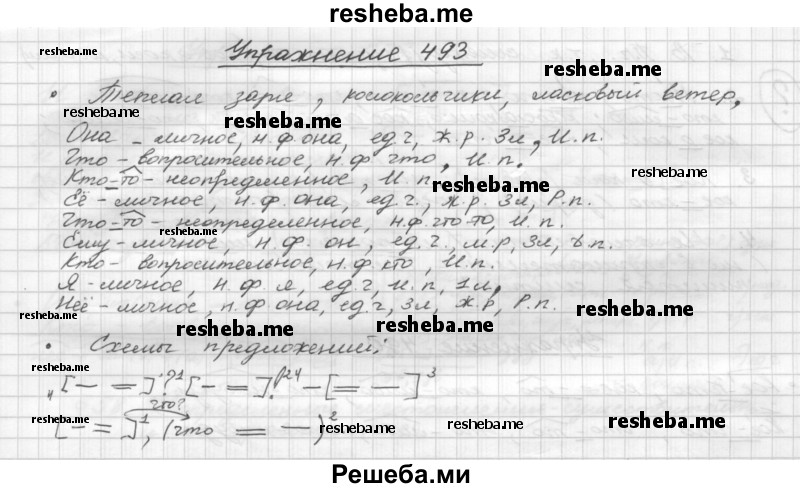 resheba.me
Упражнение 493
resheba.me
resheba.me
• Теплая заря, колокольчики, ласковый ветер,
resheba.me
resheba.me
Она - личное, н.ф. она, ед.ч, ж.р. 3л, И.п.
Что - вопросительное, н.ф что, И.п.
Кто-то - неопределенное, И.п.
resheba.me
resheba.me
Её - личное, н.ф. она, ед.ч., ж.р. 3л, Р.п.
Что-то - неопределенное, н.ф что-то, И.п.
resheba.me
Ему - личное, н.ф. он, ед.ч., м.р, 3л, п.
Кто - вопросительное, н.ф кто, И.п.
Я - личное, н.ф. я, ед.ч, И.п, 1л,
Неё - личное, н.ф она, ед.ч, 3л, ж.р, Р.п.
resheba.me
resheba.me
resheba.me
• Схемы предложений:
resheba.me
„[— =]?¹ [— =].“ — [= —]³
что?
[— =]¹, (что = —)²
resheba.me
resheba.me
resheba.me
resheba.me
Решеба.ми